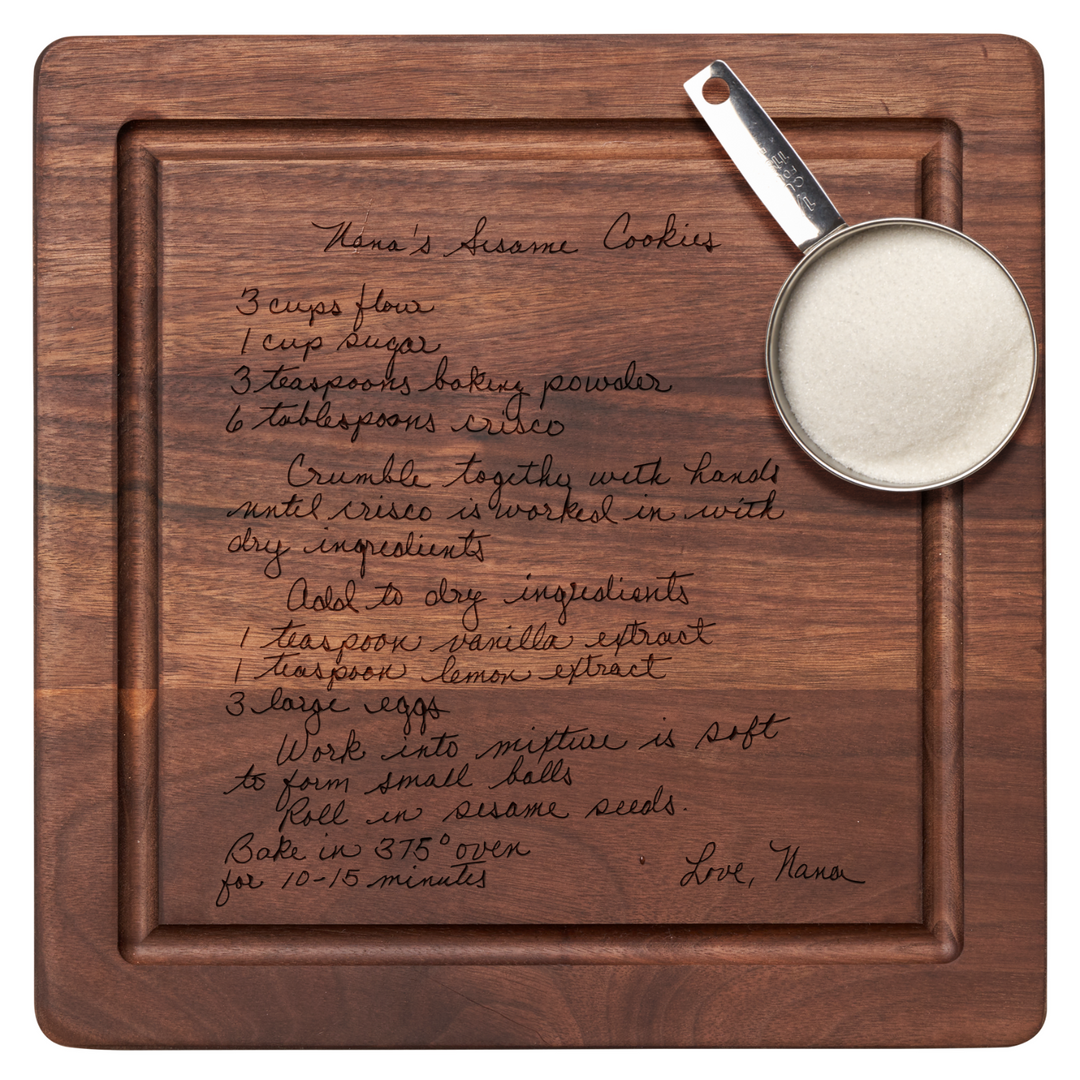 Nana's Sesame Cookies
3 cups flour
1 cup sugar
3 teaspoons baking powder
6 tablespoons crisco
Crumble together with hands
until crisco is worked in with
dry ingredients
Add to dry ingredients
1 teaspoon vanilla extract
1 teaspoon lemon extract
3 large eggs
Work into mixture is soft
to form small balls
Roll in sesame seeds.
Bake in 375° oven
for 10-15 minutes
Love, Nana